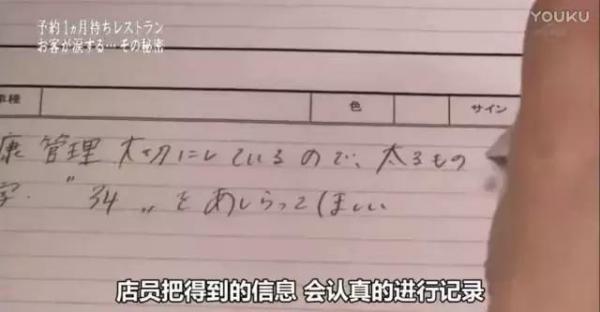 予約1ヵ月待ちレストラン
お客が涙する…その秘密
YOUKU
車種
色
サイン
康管理 大切にしているので、太るもの
字. "34" をあしらってほしい
店员把得到的信息 会认真的进行记录